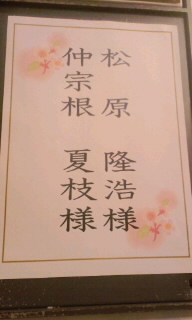 松原 隆浩様
仲宗根 夏枝様